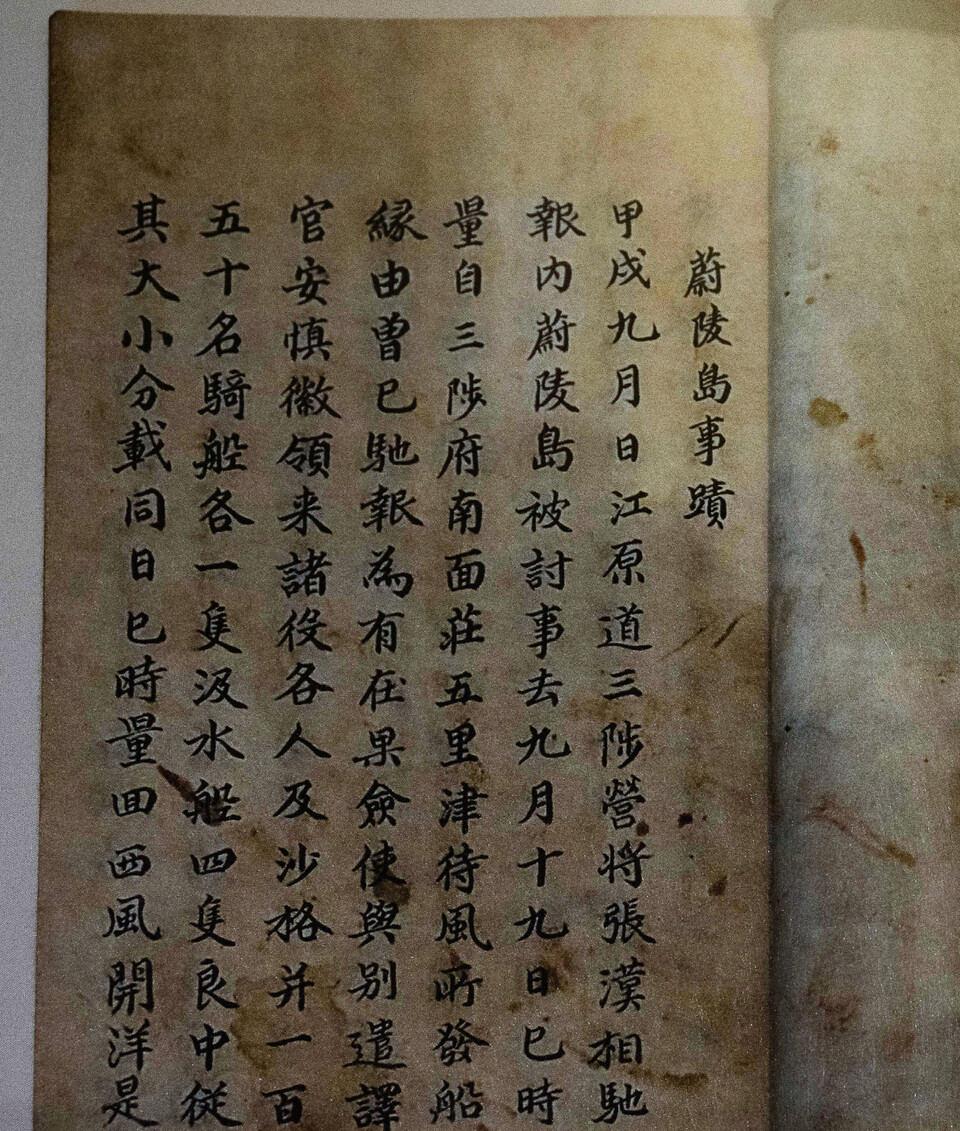 蔚陵島事蹟
甲戌九月日江原道三陟營将張漢相馳
報内蔚陵島被討事去九月十九日巳時
量自三陟府南面莊五里津待風所發船
緣由曽已馳報為有在果僉使與别遣譯
官安慎徽領来諸役各人及沙格并一百
五十名騎船各一隻汲水船四隻良中從
其大小分載同日巳時量囬西風開洋是